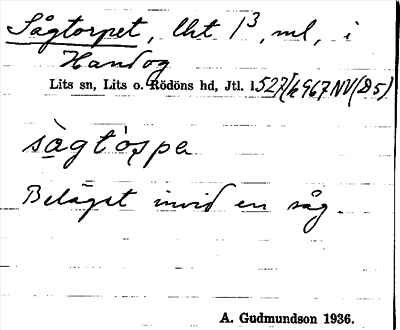 Sågtorpet, lht 1³, ml, i
Handog
Lits sn, Lits o. Rödöns hd, Jtl. l.
sàgtòrpa
Beläget invid en såg.
A. Gudmundson 1936.